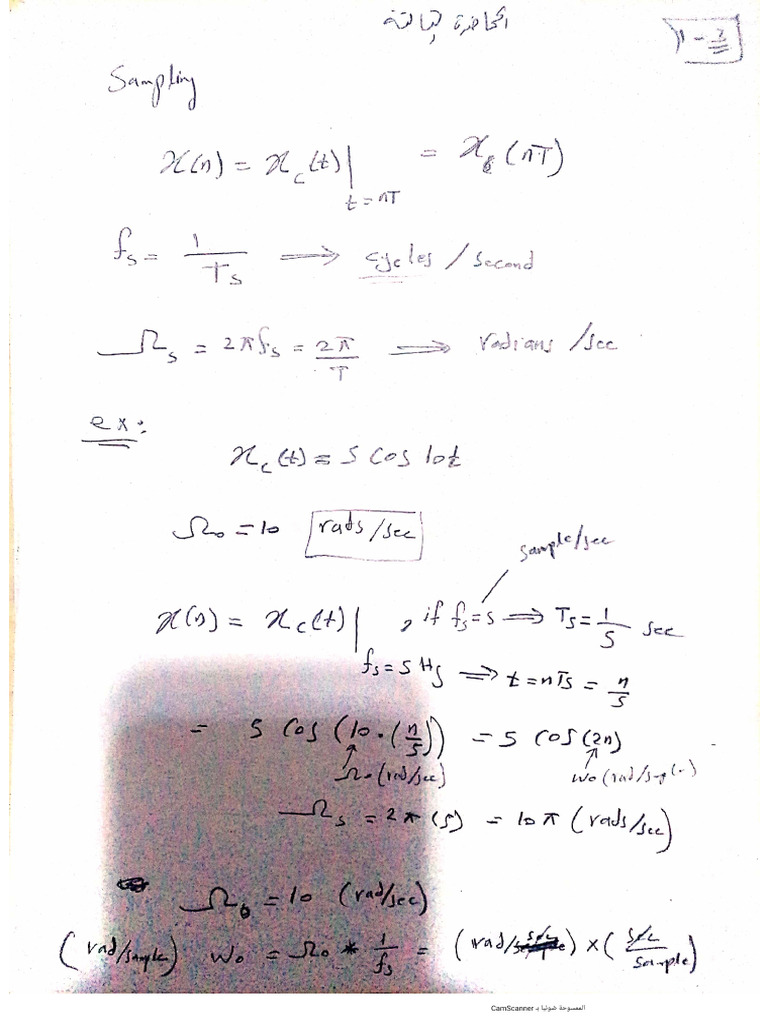 المحاضرة الثالثة
Sampling
x(n) = x_c(t)|_{t=nT} = x_c(nT)
f_s = 1/T_s ⟹ cycles/second
Ω_s = 2πf_s = 2π/T ⟹ radians/sec
ex:
x_c(t) = 5 cos 10t
Ω_0 = 10 rads/sec
sample/sec
x(n) = x_c(t)|_{f_s = 5 Hz} , if f_s = 5 ⟹ T_s = 1/5 sec
⟹ t = nT_s = n/5
= 5 cos(10·(n/5)) = 5 cos(2n)
Ω_0 (rad/sec) w_0 (rad/sample)
Ω_s = 2π(5) = 10π (rads/sec)
Ω_0 = 10 (rad/sec)
(rad/sample) w_0 = Ω_0 * 1/f_s = (rad/sec) × (sec/sample)
الممسوحة ضوئيا بـ CamScanner